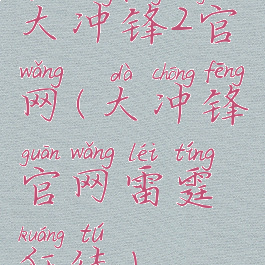 大冲锋2官
wǎng dà chōng fēng
网(大冲锋
guān wǎng léi tíng
官网雷霆
kuáng tú